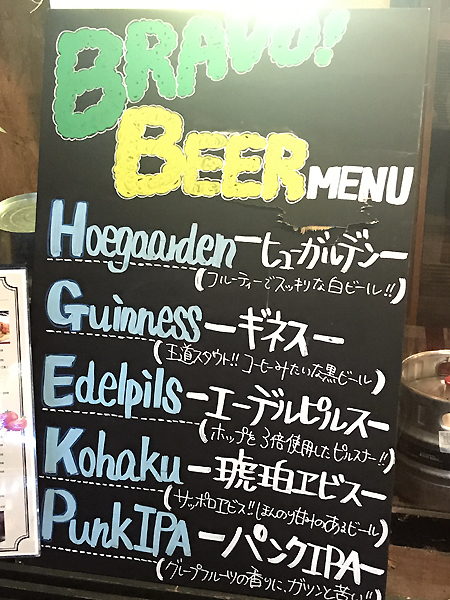 BRAVO!
BEER MENU
Hoegaarden ー ヒューガルデン ー
(フルーティーでスッキリな白ビール!!)
Guinness ー ギネス ー
(王道スタウト!! コーヒーみたいな黒ビール)
Edelpils ー エーデルピルス ー
(ホップを3倍使用したピルスナー!!)
Kohaku ー 琥珀ヱビス ー
(サッポロヱビス!! ほんのり甘みのあるビール)
PunkIPA ー パンクIPA ー
(グレープフルーツの香りに、ガツンと苦い!!)